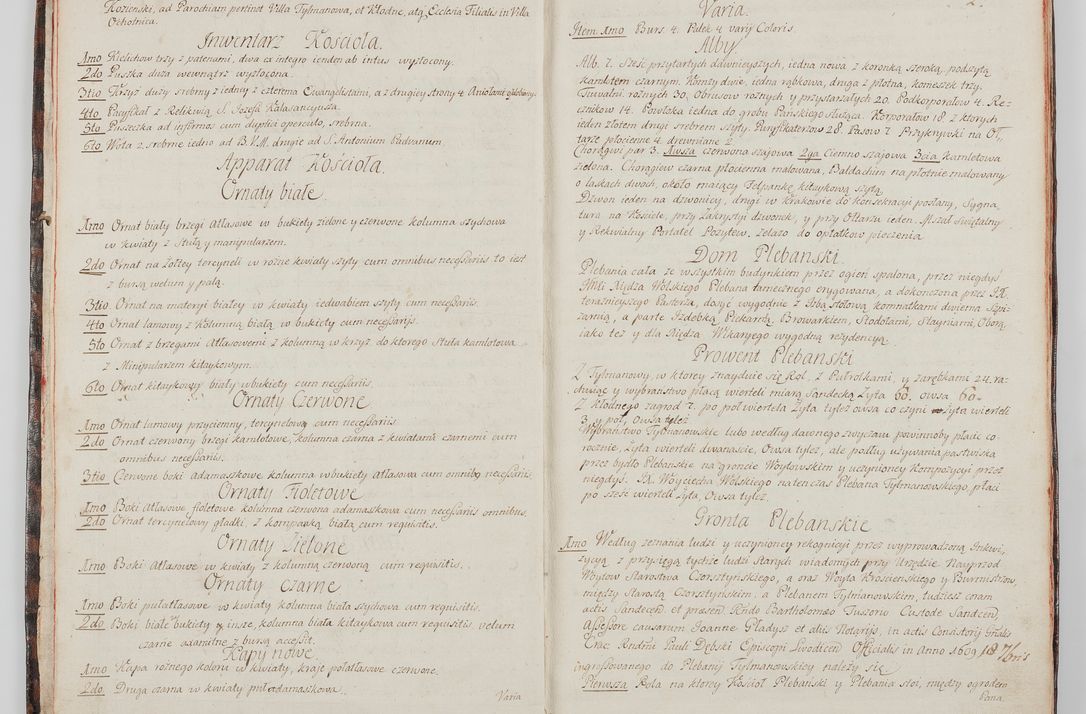 Kozienski, ad Parochiam pertinet Villa Tylmanowa, et Kłodne, atq Ecclesia Filialis in Villa
Ochotnica.
Inwentarz Kościoła.
1mo Kielichow trzy z patenami, dwa ex integro ieden ab intus wyzłocony.
2do Puszka duża wewnątrz wyzłocona.
3tio Krzyż duży srebrny z iedney z czterema Ewangelistami, a z drugiey strony 4 Aniołami ozdobiony.
4to Pacyfikał z Relikwią S. Jozefa Kalasancyusza.
5to Puszeczka ad infirmos cum duplici operculo, srebrna.
6to Wota 2. srebrne iedno ad B.V.M. drugie ad S. Antonium Paduanum.
Apparat Kościoła.
Ornaty białe.
1mo Ornat biały brzegi Atłasowe w bukiety zielone y czerwone kolumna szychowa
w kwiaty z Stułą y manipularzem.
2do Ornat na żołtey tercyneli w rożne kwiaty szyty cum omnibus necessariis to iest
z bursą welum y pallą.
3tio Ornat na materyi białey w kwiaty iedwabiem szyty cum necessariis.
4to Ornat lamowy z kolumną białą w bukiety cum necessarijs.
5to Ornat z brzegami Atłasowemi z kolumną w krzyż do ktorego Stuła kamlotowa
z Minipularzem kitaykowym.
6to Ornat kitaykowy biały w bukiety cum necessariis.
Ornaty Czerwone
1mo Ornat lamowy przyciemny, tercynelową cum necessariis.
2do Ornat czerwony brzegi kamlotowe, kolumna czarna z kwiatami czarnemi cum
omnibus necessariis.
3tio Czerwone boki adamaszkowe kolumna w bukiety atłasowa cum omnibq necessariis
Ornaty Fioletowe
1mo Boki Atłasowe fioletowe kolumna czerwona adamaszkowa cum necessariis omnibus.
2do Ornat tercynelowy gładki, z kompanką białą cum requisitis.
Ornaty Zielone
1mo Boki Atłasowe w kwiaty z kolumną czerwoną cum requisitis.
Ornaty Czarne
1mo Boki pułatłasowe w kwiaty kolumna biała szychowa cum requisitis.
2do Boki białe bukiety y insze, kolumna biała kitaykowa cum requisitis welum
czarne adamitne z bursą accessit.
Kapy nowe.
1mo Kapa rożnego koloru w kwiaty, kraje połatłasowe czerwone.
2do Druga czarna w kwiaty putadamaszkowa.
Varia
Varia.
Item 1mo Burs 4. Palek 4 varij Coloris.
Alby
Alb 7. Sześć przytartych dawnieyszych, iedna nowa z koronką szeroką, podszytą
kamlotem czarnym. Komży dwie, iedna rąbkowa, druga z płotna, komeżek trzy.
Tuwalni rożnych 30, Obrusow rożnych y przystarzałych 20. Podkorporałow 4. Rę-
cznikow 14. Powłoka iedna do grobu Pańskiego służąca. Korporałow 18 z ktorych
ieden złotem drugi srebrem szyty. Puryfikaterzow 28. Pasow 7. Przykrywki na Oł-
tarze płocienne 4. drewniane 2
Chorągwi par 3. 1wsza czerwona szajowa 2ga Ciemno szajowa 3cia kamletowa
zielona. Chorągiew czarna płocienna malowana, Baldachim na płotnie malowany
o laskach dwoch, około maiący Telpankę kitaykową szytą
Dzwon ieden na dzwonicy, drugi w Krakowie do konsekracyi posłany, Sygna-
tura na Kościele, przy Zakrystyi dzwonek, y przy Ołtarzu ieden. Mszał Swiątalny
y Rekwialny Portatel Pozytew. żelazo do opłatkow pieczenia
Dom Plebański.
Plebania cała ze wszystkim budynkiem przez ogień spalona, przez niegdys
JMci Xiędza Wolskiego Plebana tamecznego erygowana, a dokończona przez JX
teraznieyszego Pasterza, dosyć wygodnie z Izbą stołową, komnatkami dwiema Szpi-
żarnią, a parte Izdebką Piekarnią, Browarkiem, Stodołami, Stayniami, Oborą,
iako też y dla Xiędza Wikarego wygodną rezydencyą.
Prowent Plebanski
Z Tylmanowy, w ktorey znayduie się Rol, z Pułrolkami, y zarębkami 24. ra-
chuiąc y wybraństwo płacą wierteli miarą Sandecką Żyta 60, owsa 60.
Z Kłodnego zagrod 7. po poł wiertela Żyta tyleż owsa co czyni Żyta wierteli
3 y poł, Owsa tyleż
Wybraństwo Tylmanowskie lubo według dawnego zwyczaiu powinnoby płacic co-
rocznie, Żyta wierteli dwanascie, Owsa tyleż, ale podług używania pastwiska
przez bydło Plebanskie na groncie Woytowskim y uczynioney Kompozycyi przez
niegdys JX. Woyciecha Wolskiego natenczas Plebana Tylmanowskiego, płaci
po sześć wierteli Żyta, Owsa tyleż.
Gronta Plebanskie
1mo Według zeznania ludzi y uczynioney rekognicyi przez wyprowadzoną Inkwi-
zycyą z przysięgą tychże ludzi starych wiadomych przy Urzędzie Nayprzod
Woytow Starostwa Czorsztyńskiego, a oraz Woyta Krościenskiego y Burmistrzow,
między Starostą Czorsztyńskim a Plebanem Tylmanowskim, tudziesz coram
actis Sandecen et presen Rndo Bartholomeo Fusorio Custode Sandcen
Assessore causarum Joanne Gładysz et aliis Notarijs, in actis Consistorij Gnalis
Crac Rndmi Pauli Dębski Episcopi Laodicen Officialis in Anno 1609 18 76ris
ingrossowanego do Plebanij Tylmanowskiey należy się
Pierwsza Rola na ktorey Kościoł Plebanski y Plebania stoi, między ogrodem
Pana.